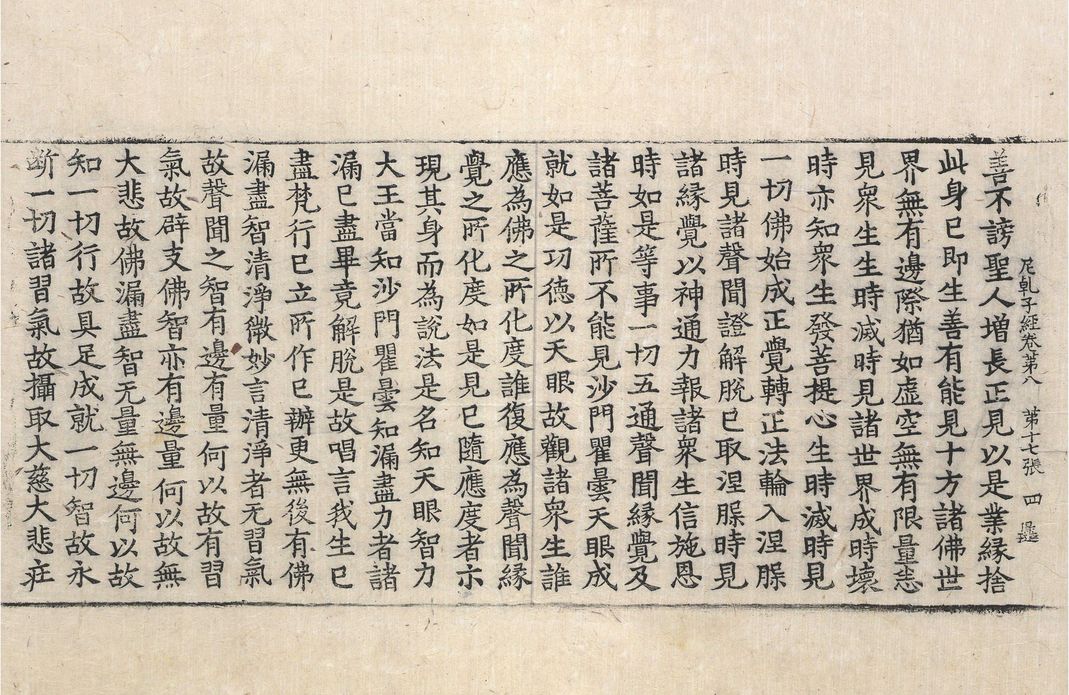 尼乹子經卷第八 第十七張 四
善不謗聖人增長正見以是業緣捨
此身已即生善有能見十方諸佛世
界無有邊際猶如虛空無有限量悉
見衆生生時滅時見諸世界成時壞
時亦知衆生發菩提心生時滅時見
一切佛始成正覺轉正法輪入涅槃
時見諸聲聞證解脫已取涅槃時見
諸緣覺以神通力報諸衆生信施恩
時如是等事一切五通聲聞緣覺及
諸菩薩所不能見沙門瞿曇天眼成
就如是功德以天眼故觀諸衆生誰
應為佛之所化度誰復應為聲聞緣
覺之所化度如是見已隨應度者示
現其身而為說法是名知天眼智力
大王當知沙門瞿曇知漏盡力者諸
漏已盡畢竟解脫是故唱言我生已
盡梵行已立所作已辦更無後有佛
漏盡智清淨微妙言清淨者无習氣
故聲聞之智有邊有量何以故有習
氣故辟支佛智亦有邊量何以故無
大悲故佛漏盡智无量無邊何以故
知一切行故具足成就一切智故永
断一切諸習氣故攝取大慈大悲疰